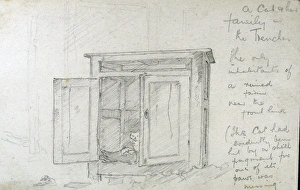 a Cat & her
family in
the Trenches
The only
inhabitants of
a ruined
farm
near the
front line
(The Cat had
evidently been
hit by a shell
fragment for
one of its
paws was
missing